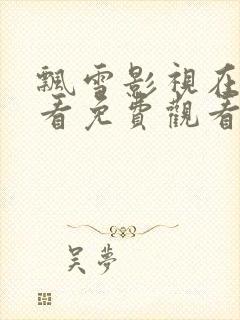 飄雪影視在
看免費觀看
吴夢